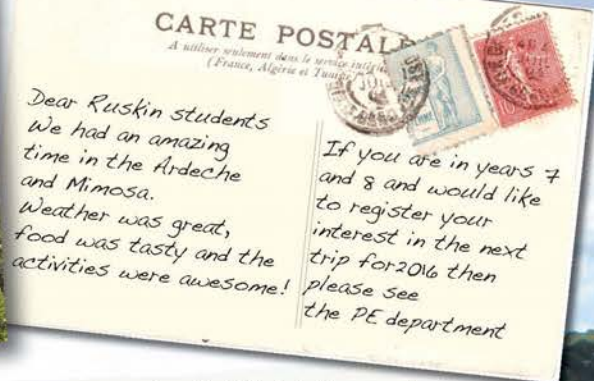 CARTE POSTALE
A utiliser seulement dans le service
(France, Algérie et
Dear Ruskin students
We had an amazing
time in the Ardeche
and Mimosa.
Weather was great,
food was tasty and the
activities were awesome!
If you are in years 7
and 8 and would like
to register your
interest in the next
trip for 2016 then
please see
the PE department